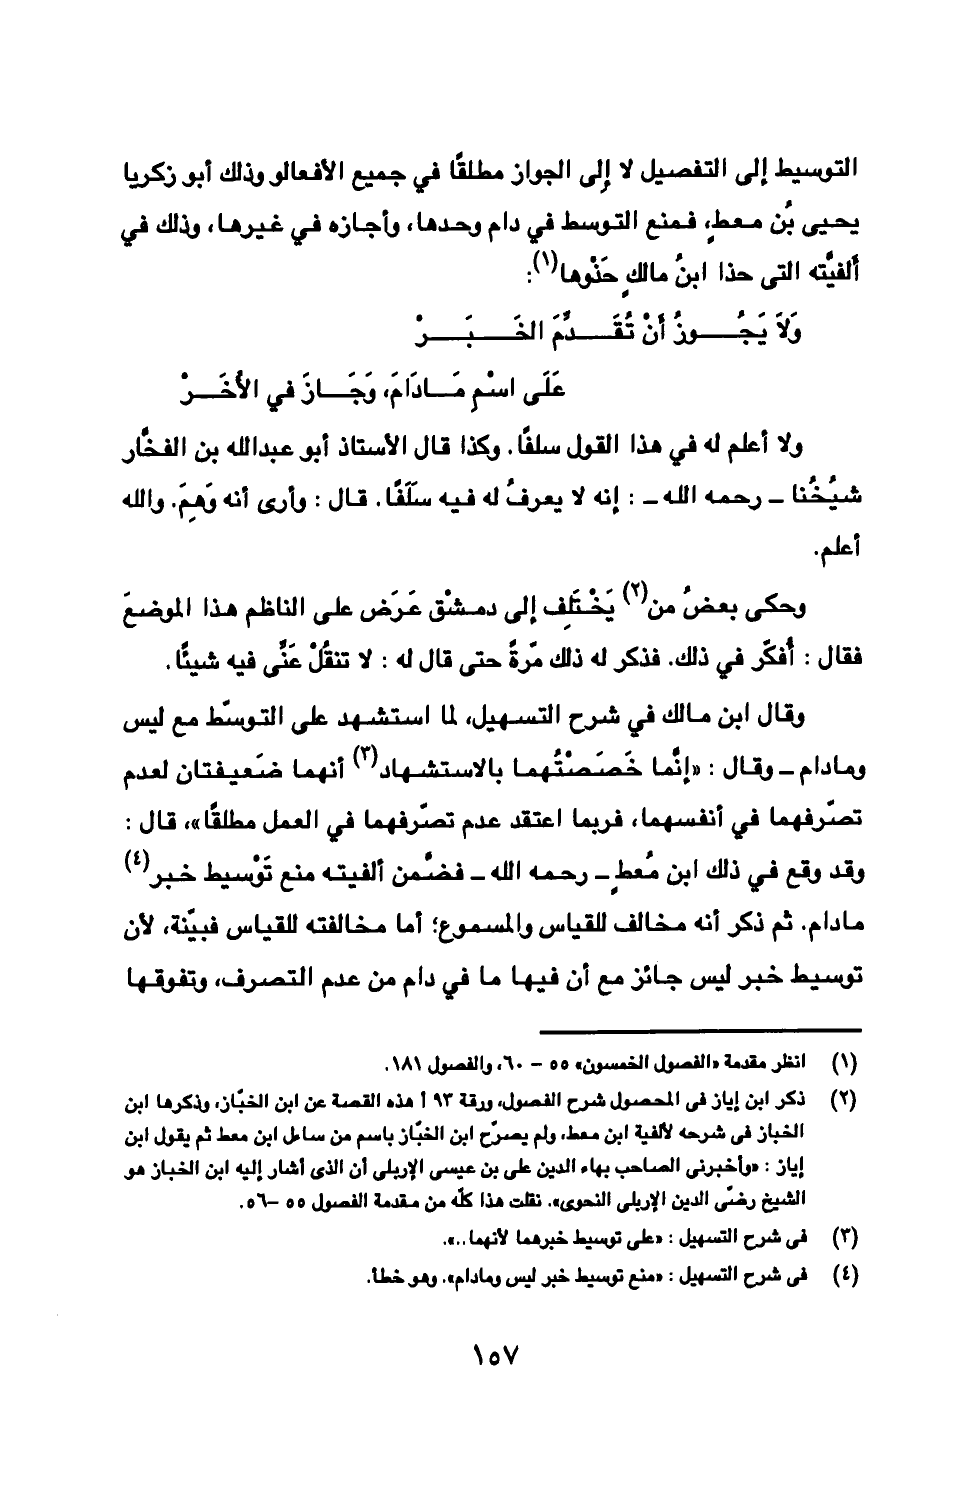 التوسيط إلى التفصيل لا إلى الجواز مطلقًا في جميع الأفعالو وذلك أبو زكريا
يحيى بُن معطٍ، فمنع التوسط في دام وحدها، وأجازه في غيرها، وذلك في
ألفيَّته التى حذا ابنُ مالكٍ حَذْوها(١):
وَلاَ يَجُـــوزُ أَنْ تُقَـــدَّمَ الخَـــبَـــرْ
عَلَى اسْمِ مَـــادَامَ، وَجَـــازَ في الأُخَـــرْ
ولا أعلم له في هذا القول سلفًا. وكذا قال الأستاذ أبو عبدالله بن الفخَّار
شيُخُنا ـ رحمه الله ـ : إنه لا يعرفُ له فيه سلَفًا. قال : وأرى أنه وَهِمَ. والله
أعلم.
وحكى بعضُ من(٢) يَخْتَلِف إلى دمشْق عَرَض على الناظم هذا الموضعَ
فقال : أُفكّر في ذلك. فذكر له ذلك مّرةً حتى قال له : لا تنقُلْ عَنِّى فيه شيئًا.
وقال ابن مالك في شرح التسهيل، لما استشهد على التوسّط مع ليس
ومادام ـ وقال : «إنَّما خَصَصْتُهما بالاستشهاد(٣) أنهما ضَعيفتان لعدم
تصّرفهما في أنفسهما، فربما اعتقد عدم تصّرفهما في العمل مطلقًا»، قال :
وقد وقع في ذلك ابن مُعطٍ ـ رحمه الله ـ فضَّمن ألفيته منع تَوْسيط خبر(٤)
مادام. ثم ذكر أنه مخالف للقياس والمسموع؛ أما مخالفته للقياس فبيّنة، لأن
توسيط خبر ليس جائز مع أن فيها ما في دام من عدم التصرف، وتفوقها
(١) انظر مقدمة «الفصول الخمسون» ٥٥ – ٦٠، والفصول ١٨١.
(٢) ذكر ابن إياز فى المحصول شرح الفصول، ورقة ٩٣ أ هذه القصة عن ابن الخبّاز، وذكرها ابن
الخباز فى شرحه لألفية ابن معط، ولم يصرّح ابن الخبّاز باسم من ساءل ابن معط ثم يقول ابن
إياز : «وأخبرنى الصاحب بهاء الدين على بن عيسى الإربلى أن الذى أشار إليه ابن الخباز هو
الشيخ رضّى الدين الإربلى النحوى». نقلت هذا كلّه من مقدمة الفصول ٥٥ –٥٦.
(٣) فى شرح التسهيل : «على توسيط خبرهما لأنهما..».
(٤) فى شرح التسهيل : «منع توسيط خبر ليس ومادام». وهو خطأ.
١٥٧